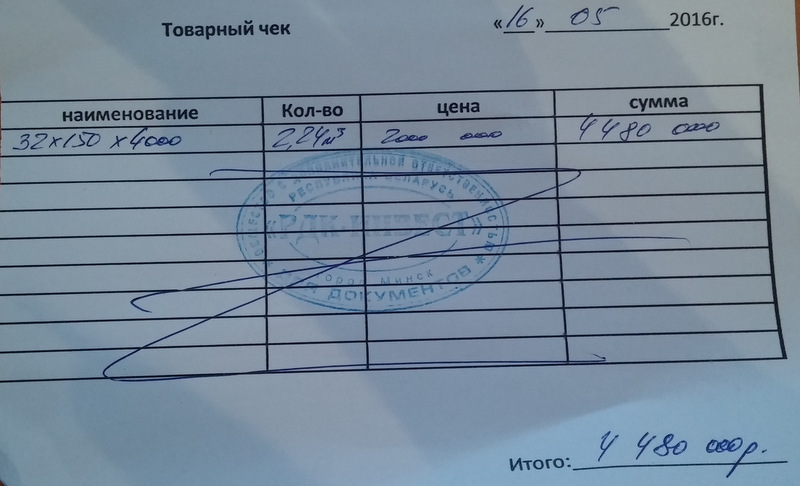 Товарный чек «16» 05 2016г.
наименование Кол-во цена сумма
32х150х4000 2,24м³ 2000 000 4 480 000
ОБЩЕСТВО С ДОПОЛНИТЕЛЬНОЙ ОТВЕТСТВЕННОСТЬЮ
РЕСПУБЛИКА БЕЛАРУСЬ
«РДИ-ИНВЕСТ»
город Минск
ДЛЯ ДОКУМЕНТОВ
Итого: 4 480 000р.